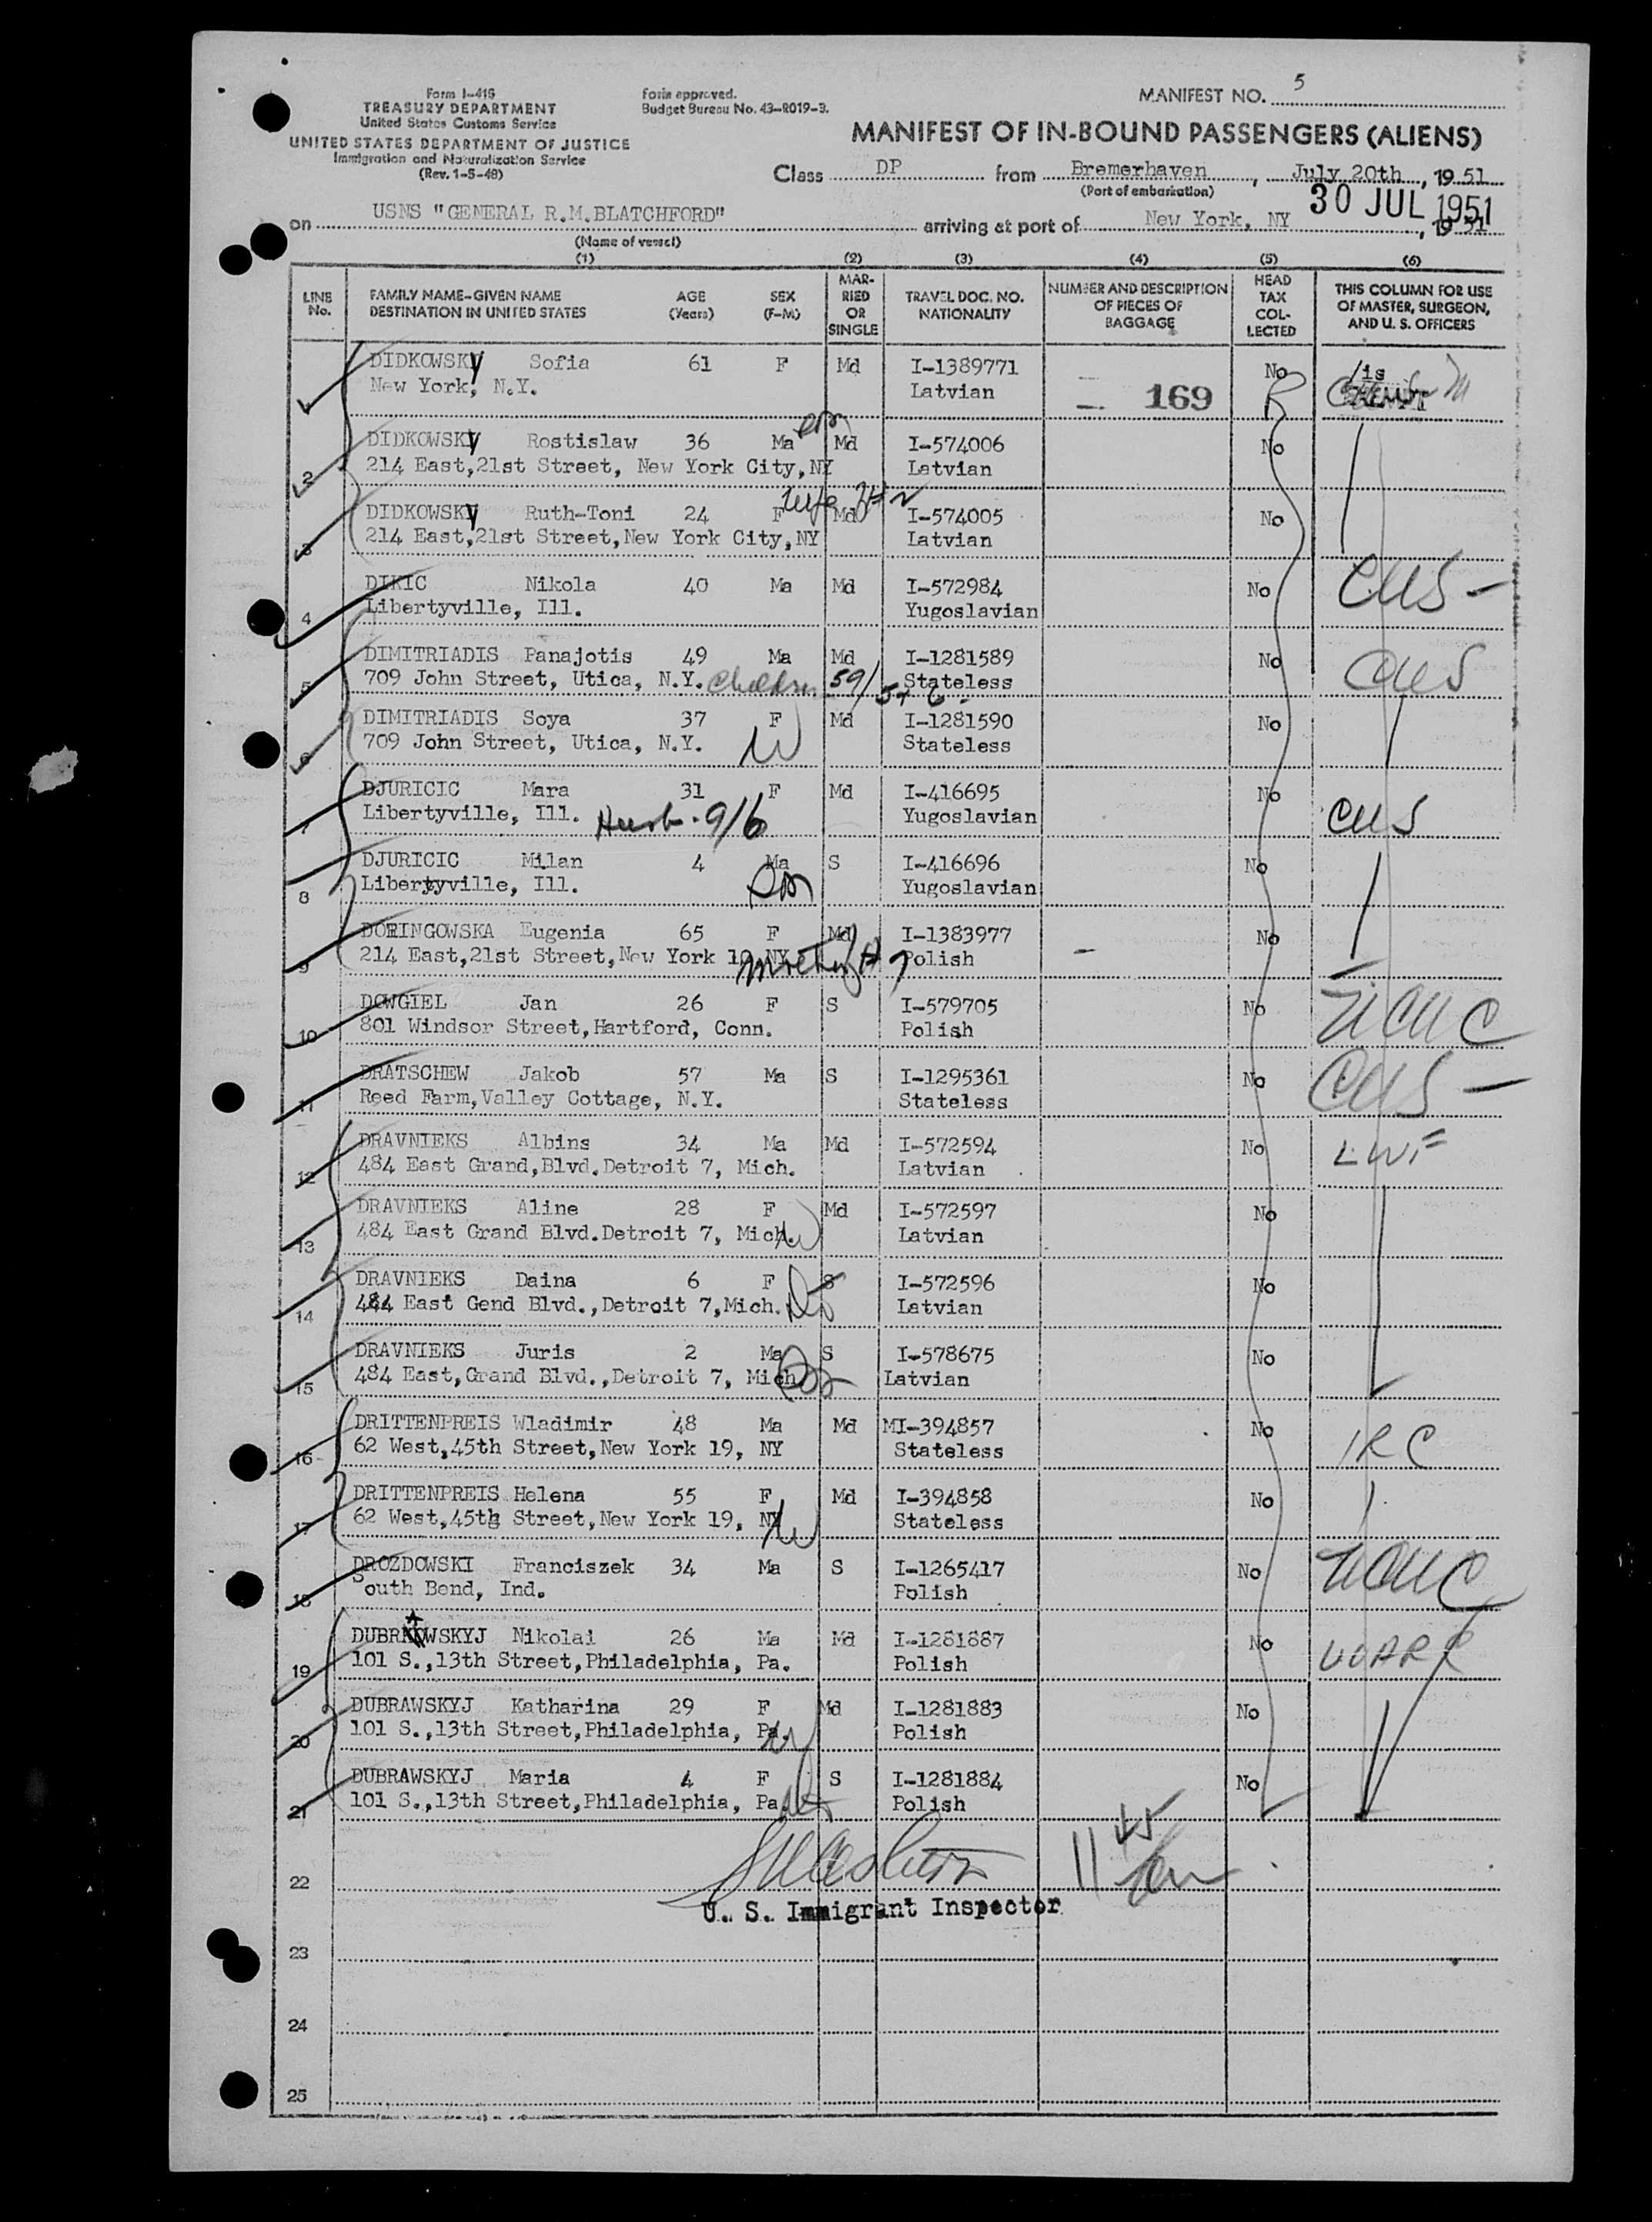 Form I-415
TREASURY DEPARTMENT
United States Customs Service
UNITED STATES DEPARTMENT OF JUSTICE
Immigration and Naturalization Service
(Rev. 1-5-48)
Form approved.
Budget Bureau No. 43-R019-3.
MANIFEST NO. 5
MANIFEST OF IN-BOUND PASSENGERS (ALIENS)
Class DP from Bremerhaven, July 20th, 1951
(Port of embarkation)
30 JUL 1951
on USNS "GENERAL R.M.BLATCHFORD" arriving at port of New York, NY, 1951
(Name of vessel)
(1) (2) (3) (4) (5) (6)
LINE No. FAMILY NAME-GIVEN NAME DESTINATION IN UNITED STATES AGE (Years) SEX (F-M) MARRIED OR SINGLE TRAVEL DOC. NO. NATIONALITY NUMBER AND DESCRIPTION OF PIECES OF BAGGAGE HEAD TAX COLLECTED THIS COLUMN FOR USE OF MASTER, SURGEON, AND U. S. OFFICERS
1 DIDKOWSKY Sofia 61 F Md I-1389771 No
New York, N.Y. Latvian 169
2 DIDKOWSKY Rostislaw 36 Ma son Md I-574006 No
214 East,21st Street, New York City,NY Latvian
3 DIDKOWSKY Ruth-Toni 24 F wife Md I-574005 No
214 East,21st Street,New York City,NY Latvian
4 DIKIC Nikola 40 Ma Md I-572984 No CWS -
Libertyville, Ill. Yugoslavian
5 DIMITRIADIS Panajotis 49 Ma Md I-1281589 No CWS
709 John Street, Utica, N.Y. Children 59/5+6 Stateless
6 DIMITRIADIS Soya 37 F Md I-1281590 No
709 John Street, Utica, N.Y. W Stateless
7 DJURICIC Mara 31 F Md I-416695 No CWS
Libertyville, Ill. Husb. 9/6 Yugoslavian
8 DJURICIC Milan 4 Ma S I-416696 No
Libertyville, Ill. Son Yugoslavian
9 DORINGOWSKA Eugenia 65 F Md I-1383977 No
214 East,21st Street,New York 10,NY mother Polish
10 DOWGIEL Jan 26 F S I-579705 No NCWC
801 Windsor Street,Hartford, Conn. Polish
11 DRATSCHEW Jakob 57 Ma S I-1295361 No CWS -
Reed Farm,Valley Cottage, N.Y. Stateless
12 DRAVNIEKS Albins 34 Ma Md I-572594 No LWF
484 East Grand,Blvd.Detroit 7, Mich. Latvian
13 DRAVNIEKS Aline 28 F Md I-572597 No
484 East Grand Blvd.Detroit 7, Mich. W Latvian
14 DRAVNIEKS Daina 6 F S I-572596 No
484 East Gend Blvd.,Detroit 7,Mich. Latvian
15 DRAVNIEKS Juris 2 Ma S I-578675 No
484 East,Grand Blvd.,Detroit 7, Mich. Son Latvian
16 DRITTENPREIS Wladimir 48 Ma Md MI-394857 No IRC
62 West,45th Street,New York 19, NY Stateless
17 DRITTENPREIS Helena 55 F Md I-394858 No
62 West,45th Street,New York 19, NY W Stateless
18 DROZDOWSKI Franciszek 34 Ma S I-1265417 No NCWC
South Bend, Ind. Polish
19 DUBRAWSKYJ Nikolai 26 Ma Md I-1281887 No UUARR
101 S.,13th Street,Philadelphia, Pa. Polish
20 DUBRAWSKYJ Katharina 29 F Md I-1281883 No
101 S.,13th Street,Philadelphia, Pa. W Polish
21 DUBRAWSKYJ Maria 4 F S I-1281884 No
101 S.,13th Street,Philadelphia, Pa. Polish
22
U. S. Immigrant Inspector
23
24
25